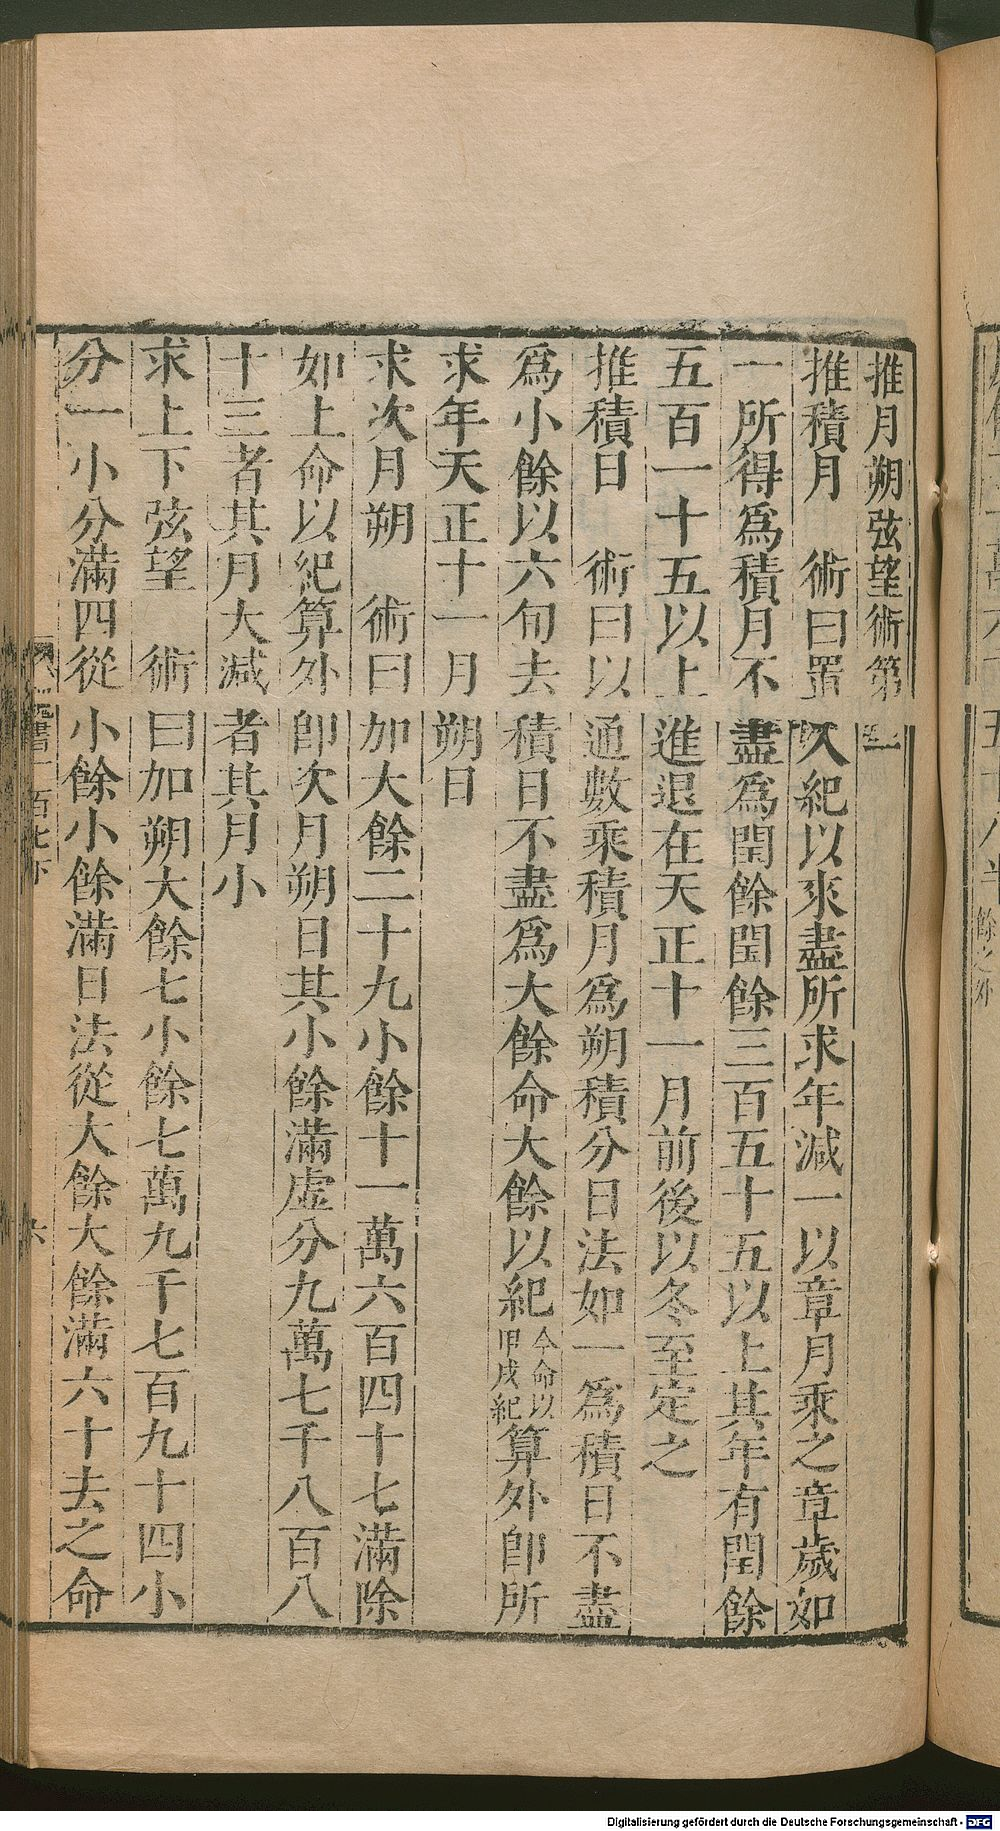 推月朔弦望術第二
推積月　術曰置入紀以來盡所求年減一以章月乘之章歲如
一所得爲積月不盡爲閏餘閏餘三百五十五以上其年有閏餘
五百一十五以上進退在天正十一月前後以冬至定之
推積日　術曰以通數乘積月爲朔積分日法如一爲積日不盡
爲小餘以六旬去積日不盡爲大餘命大餘以紀今命以甲戌紀算外卽所
求年天正十一月朔日
求次月朔　術曰加大餘二十九小餘十一萬六百四十七滿除
如上命以紀算外卽次月朔日其小餘滿虛分九萬七千八百八
十三者其月大減者其月小
求上下弦望　術曰加朔大餘七小餘七萬九千七百九十四小
分一小分滿四從小餘小餘滿日法從大餘大餘滿六十去之命
書一百七下
六
餘之外
Digitalisierung gefördert durch die Deutsche Forschungsgemeinschaft - DFG